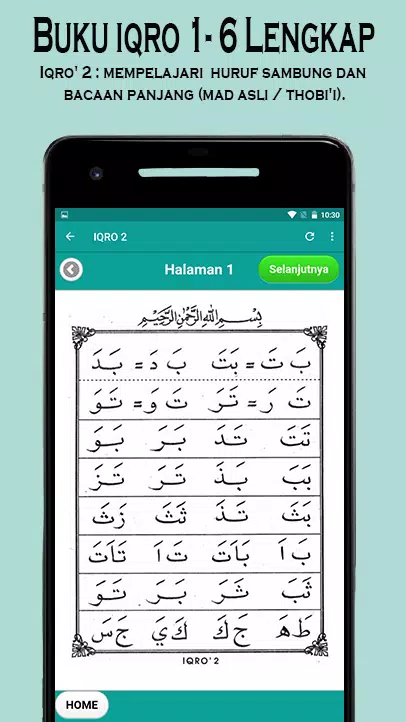 BUKU IQRO 1- 6 LENGKAP
IQRO' 2 : MEMPELAJARI HURUF SAMBUNG DAN
BACAAN PANJANG (MAD ASLI / THOBI'I).
10:30
IQRO 2
Halaman 1
Selanjutnya
بِسْمِ اللهِ الرَّحْمٰنِ الرَّحِيْمِ
بَ تَ = بَتَ بَ دَ = بَدَ
تَ رَ = تَرَ تَ وَ = تَوَ
تَتَ تَدَ بَرَ بَوَ
بَبَ بَذَ تَرَ تَزَ
بَثَ تَذَ ثَثَ زَثَ
بَ اَ بَاَتَ تَ اَ تَاَتَ
ثَبَ ثَرَ بَرَ تَوَ
طَ هَ جَ كَ كَ يَ جَ سَ
IQRO' 2
HOME